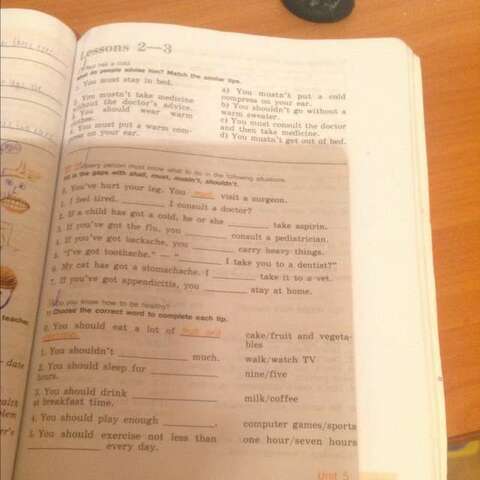 Lessons 2—3
has a cold.
do people advise him? Match the similar tips.
You must stay in bed.
You mustn't take medicine
without the doctor's advice.
You should wear warm
You must put a warm com-
on your ear.
a) You mustn't put a cold
compress on your ear.
b) You shouldn't go without a
warm sweater.
c) You must consult the doctor
and then take medicine.
d) You mustn't get out of bed.
Every person must know what to do in the following situations.
Fill in the gaps with shall, must, mustn't, shouldn't.
0. You've hurt your leg. You must visit a surgeon.
1. I feel tired. ________ I consult a doctor?
2. If a child has got a cold, he or she ________ take aspirin.
3. If you've got the flu, you ________ consult a pediatrician.
4. If you've got backache, you ________ carry heavy things.
5. "I've got toothache." — "________ I take you to a dentist?"
6. My cat has got a stomachache. I ________ take it to a vet.
7. If you've got appendicitis, you ________ stay at home.
Do you know how to be healthy?
Choose the correct word to complete each tip.
0. You should eat a lot of fruit and
cake/fruit and vegeta-
bles
1. You shouldn't ________ much.
walk/watch TV
2. You should sleep for ________
hours.
nine/five
3. You should drink ________
at breakfast time.
milk/coffee
4. You should play enough ________.
computer games/sports
5. You should exercise not less than
________ every day.
one hour/seven hours
Unit 5
teacher
date